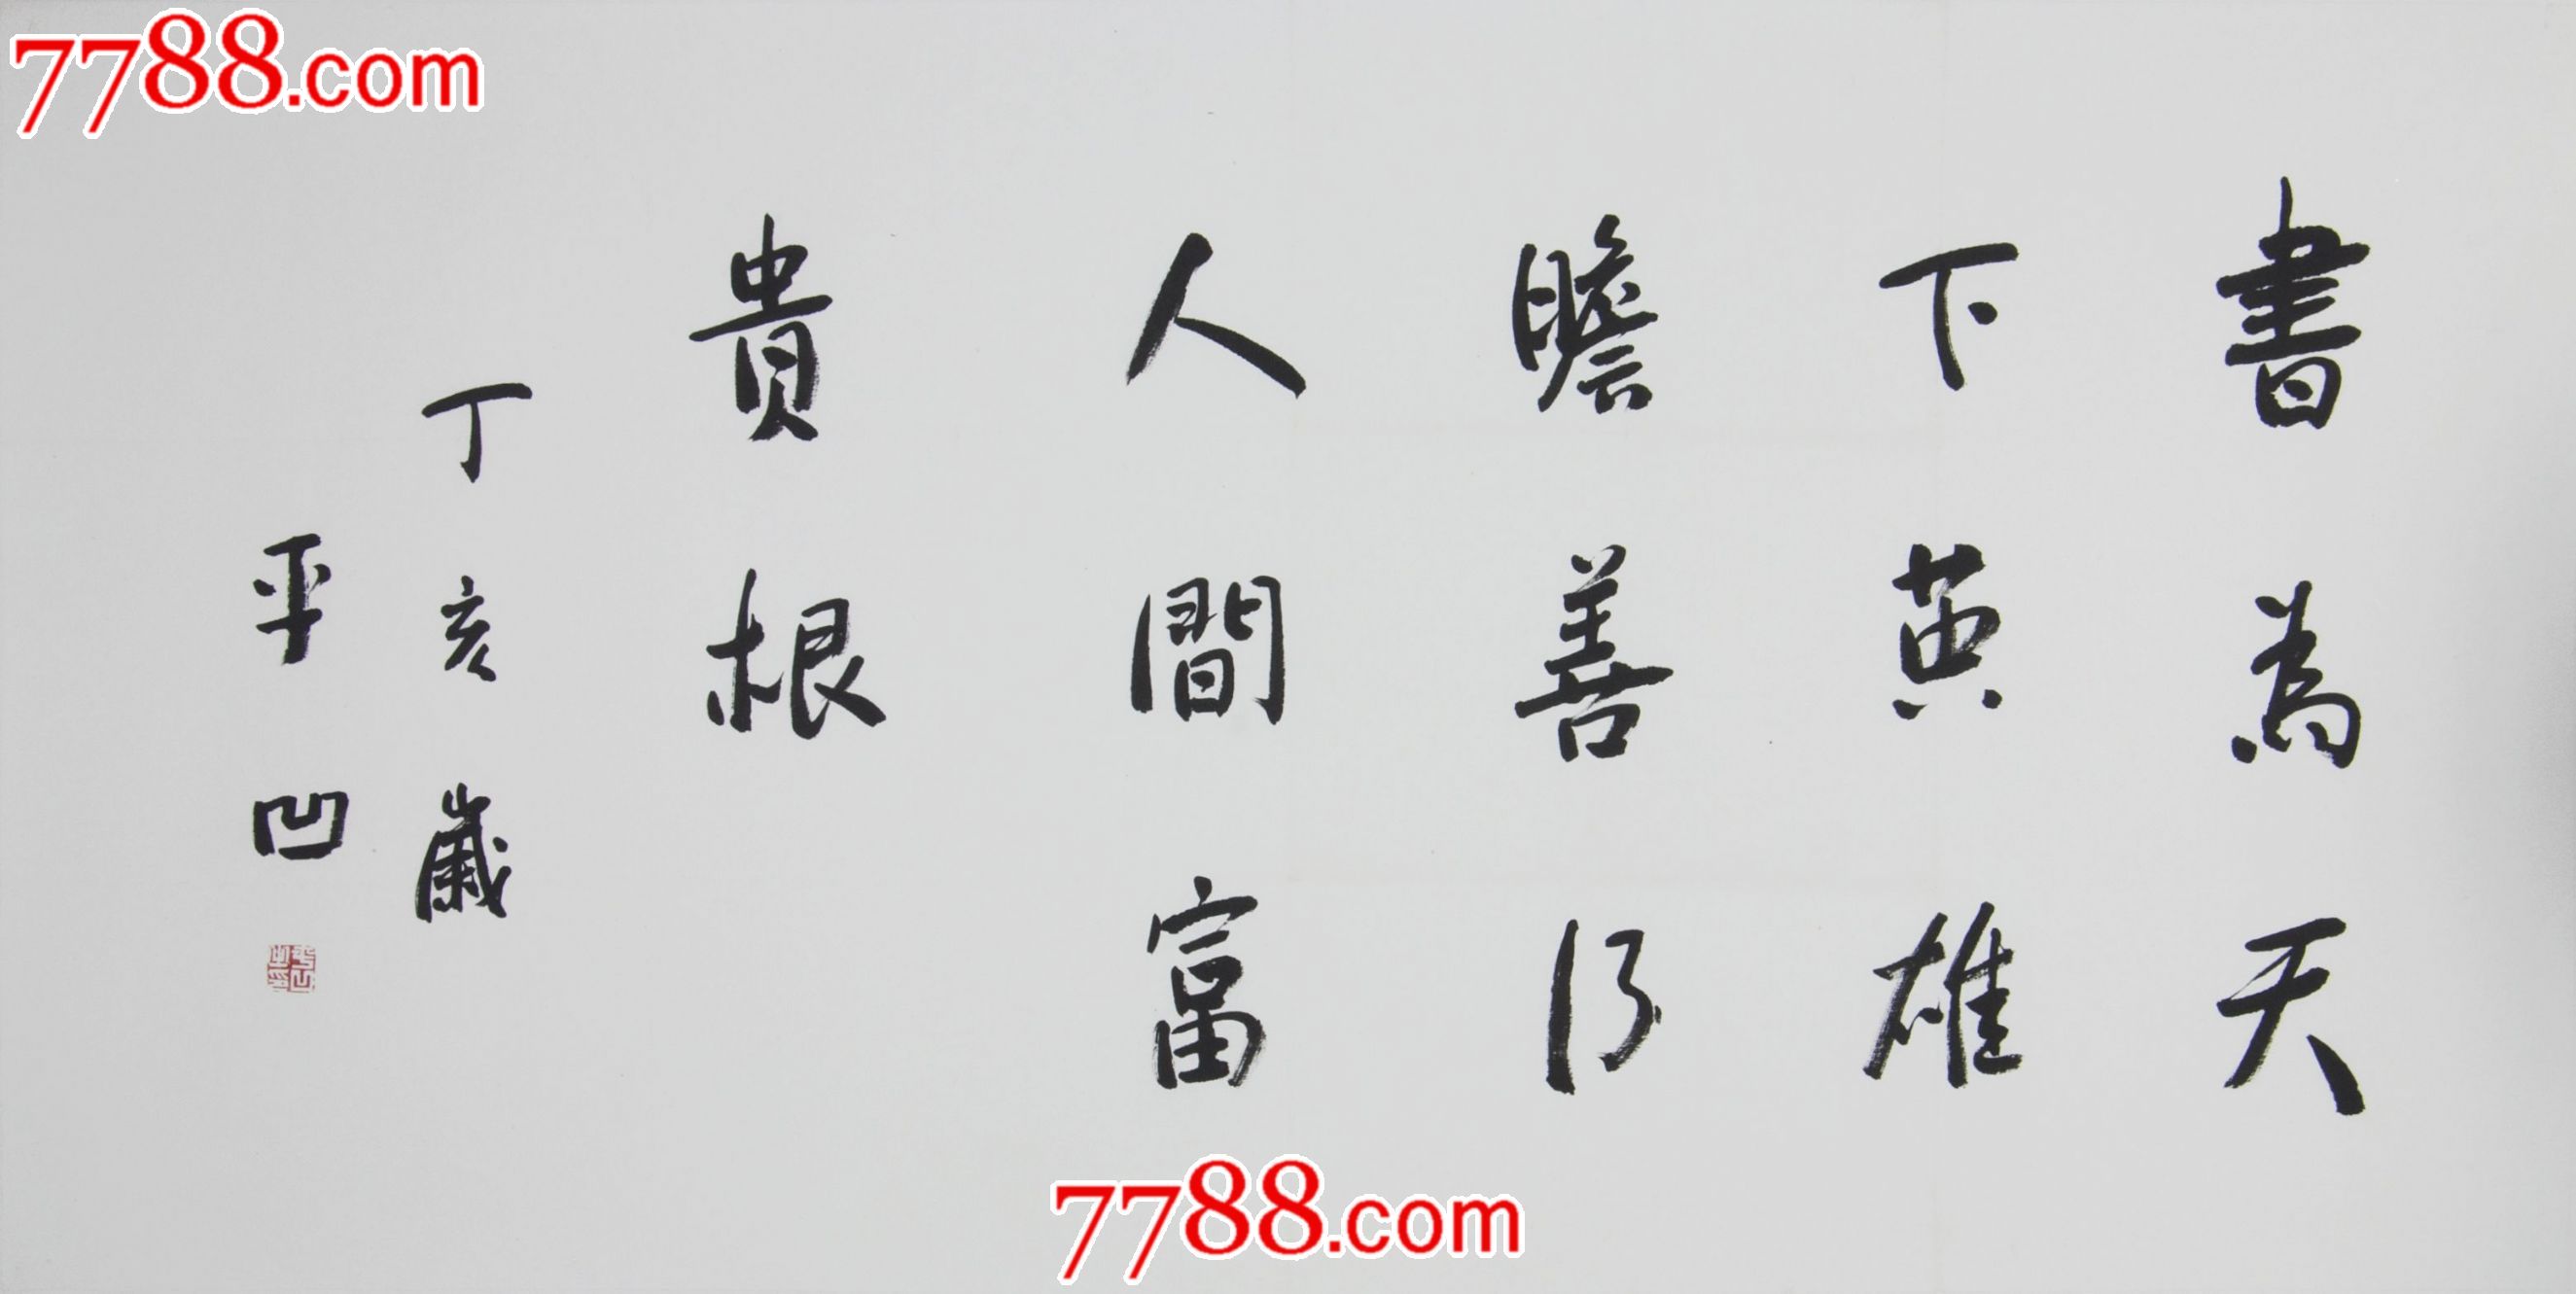 書為天
下英雄
瞻善行
人間富
貴根
丁亥歲
平凹
7788.com
7788.com